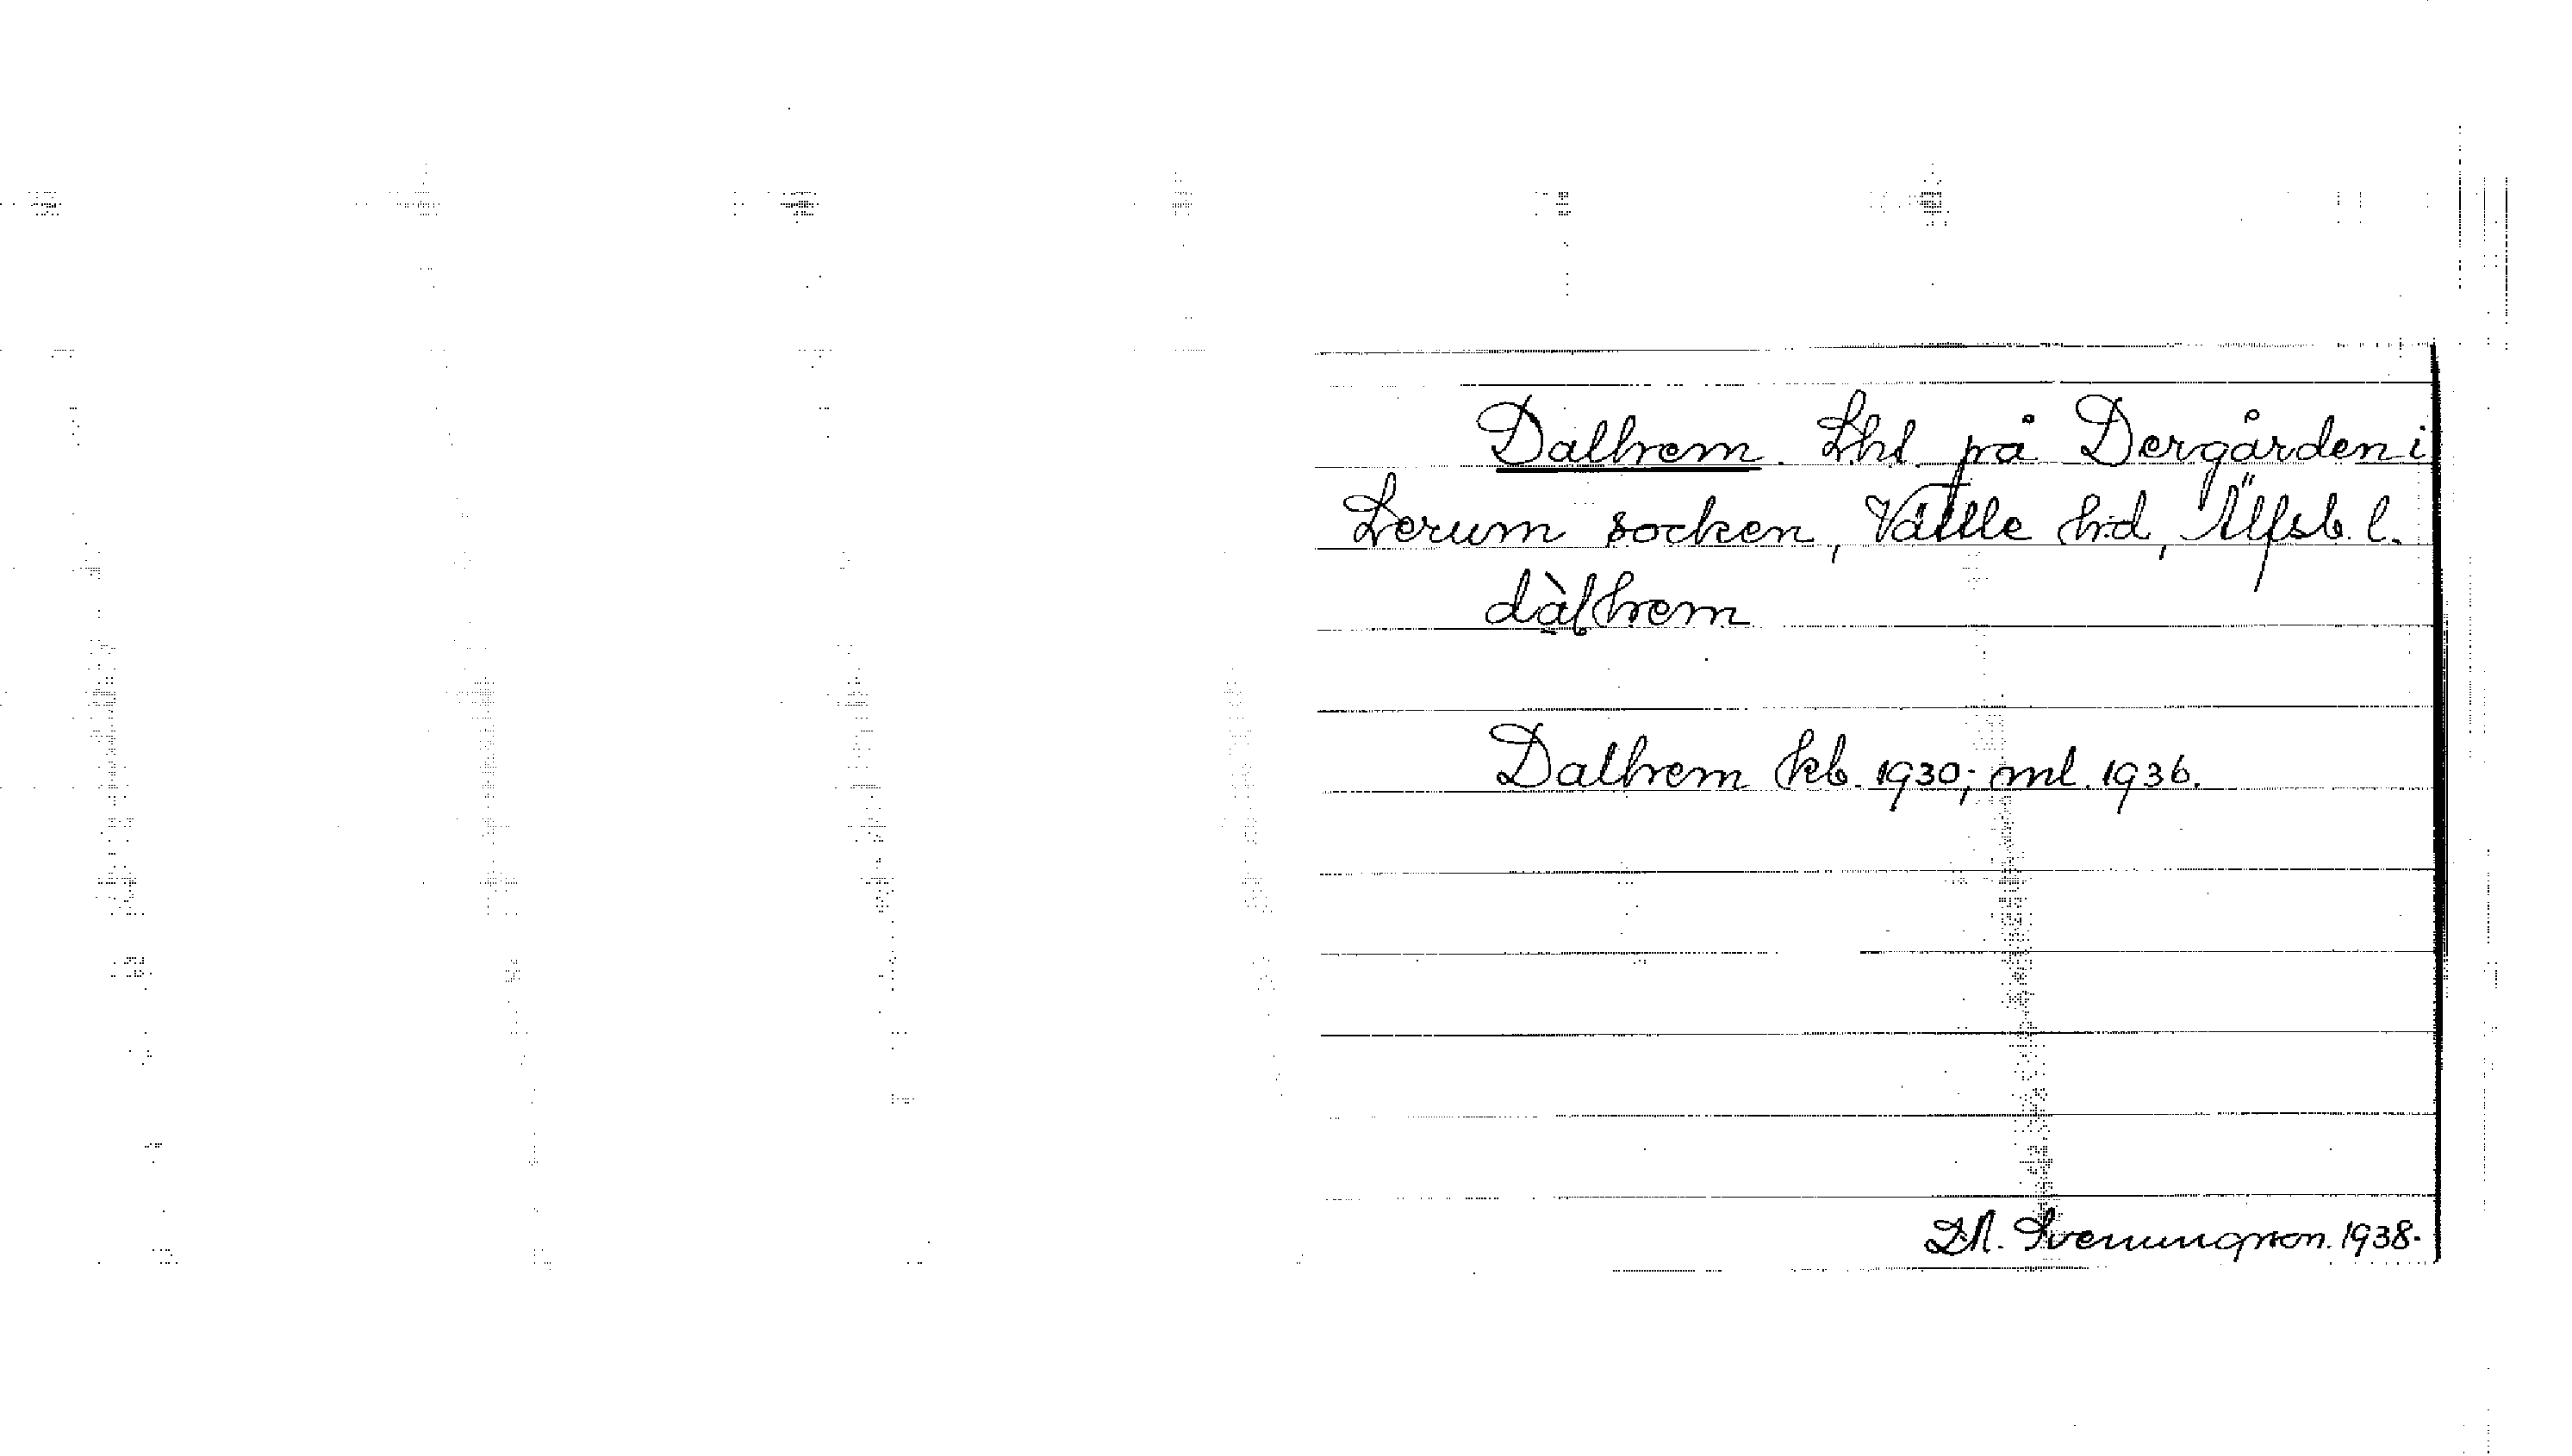 Dalhem. Lht. på Dergården i
Lerum socken, Vättle hd, Älfsb. l.
dàlhem
Dalhem kb. 1930; ml. 1936.
Svenungsson. 1938.